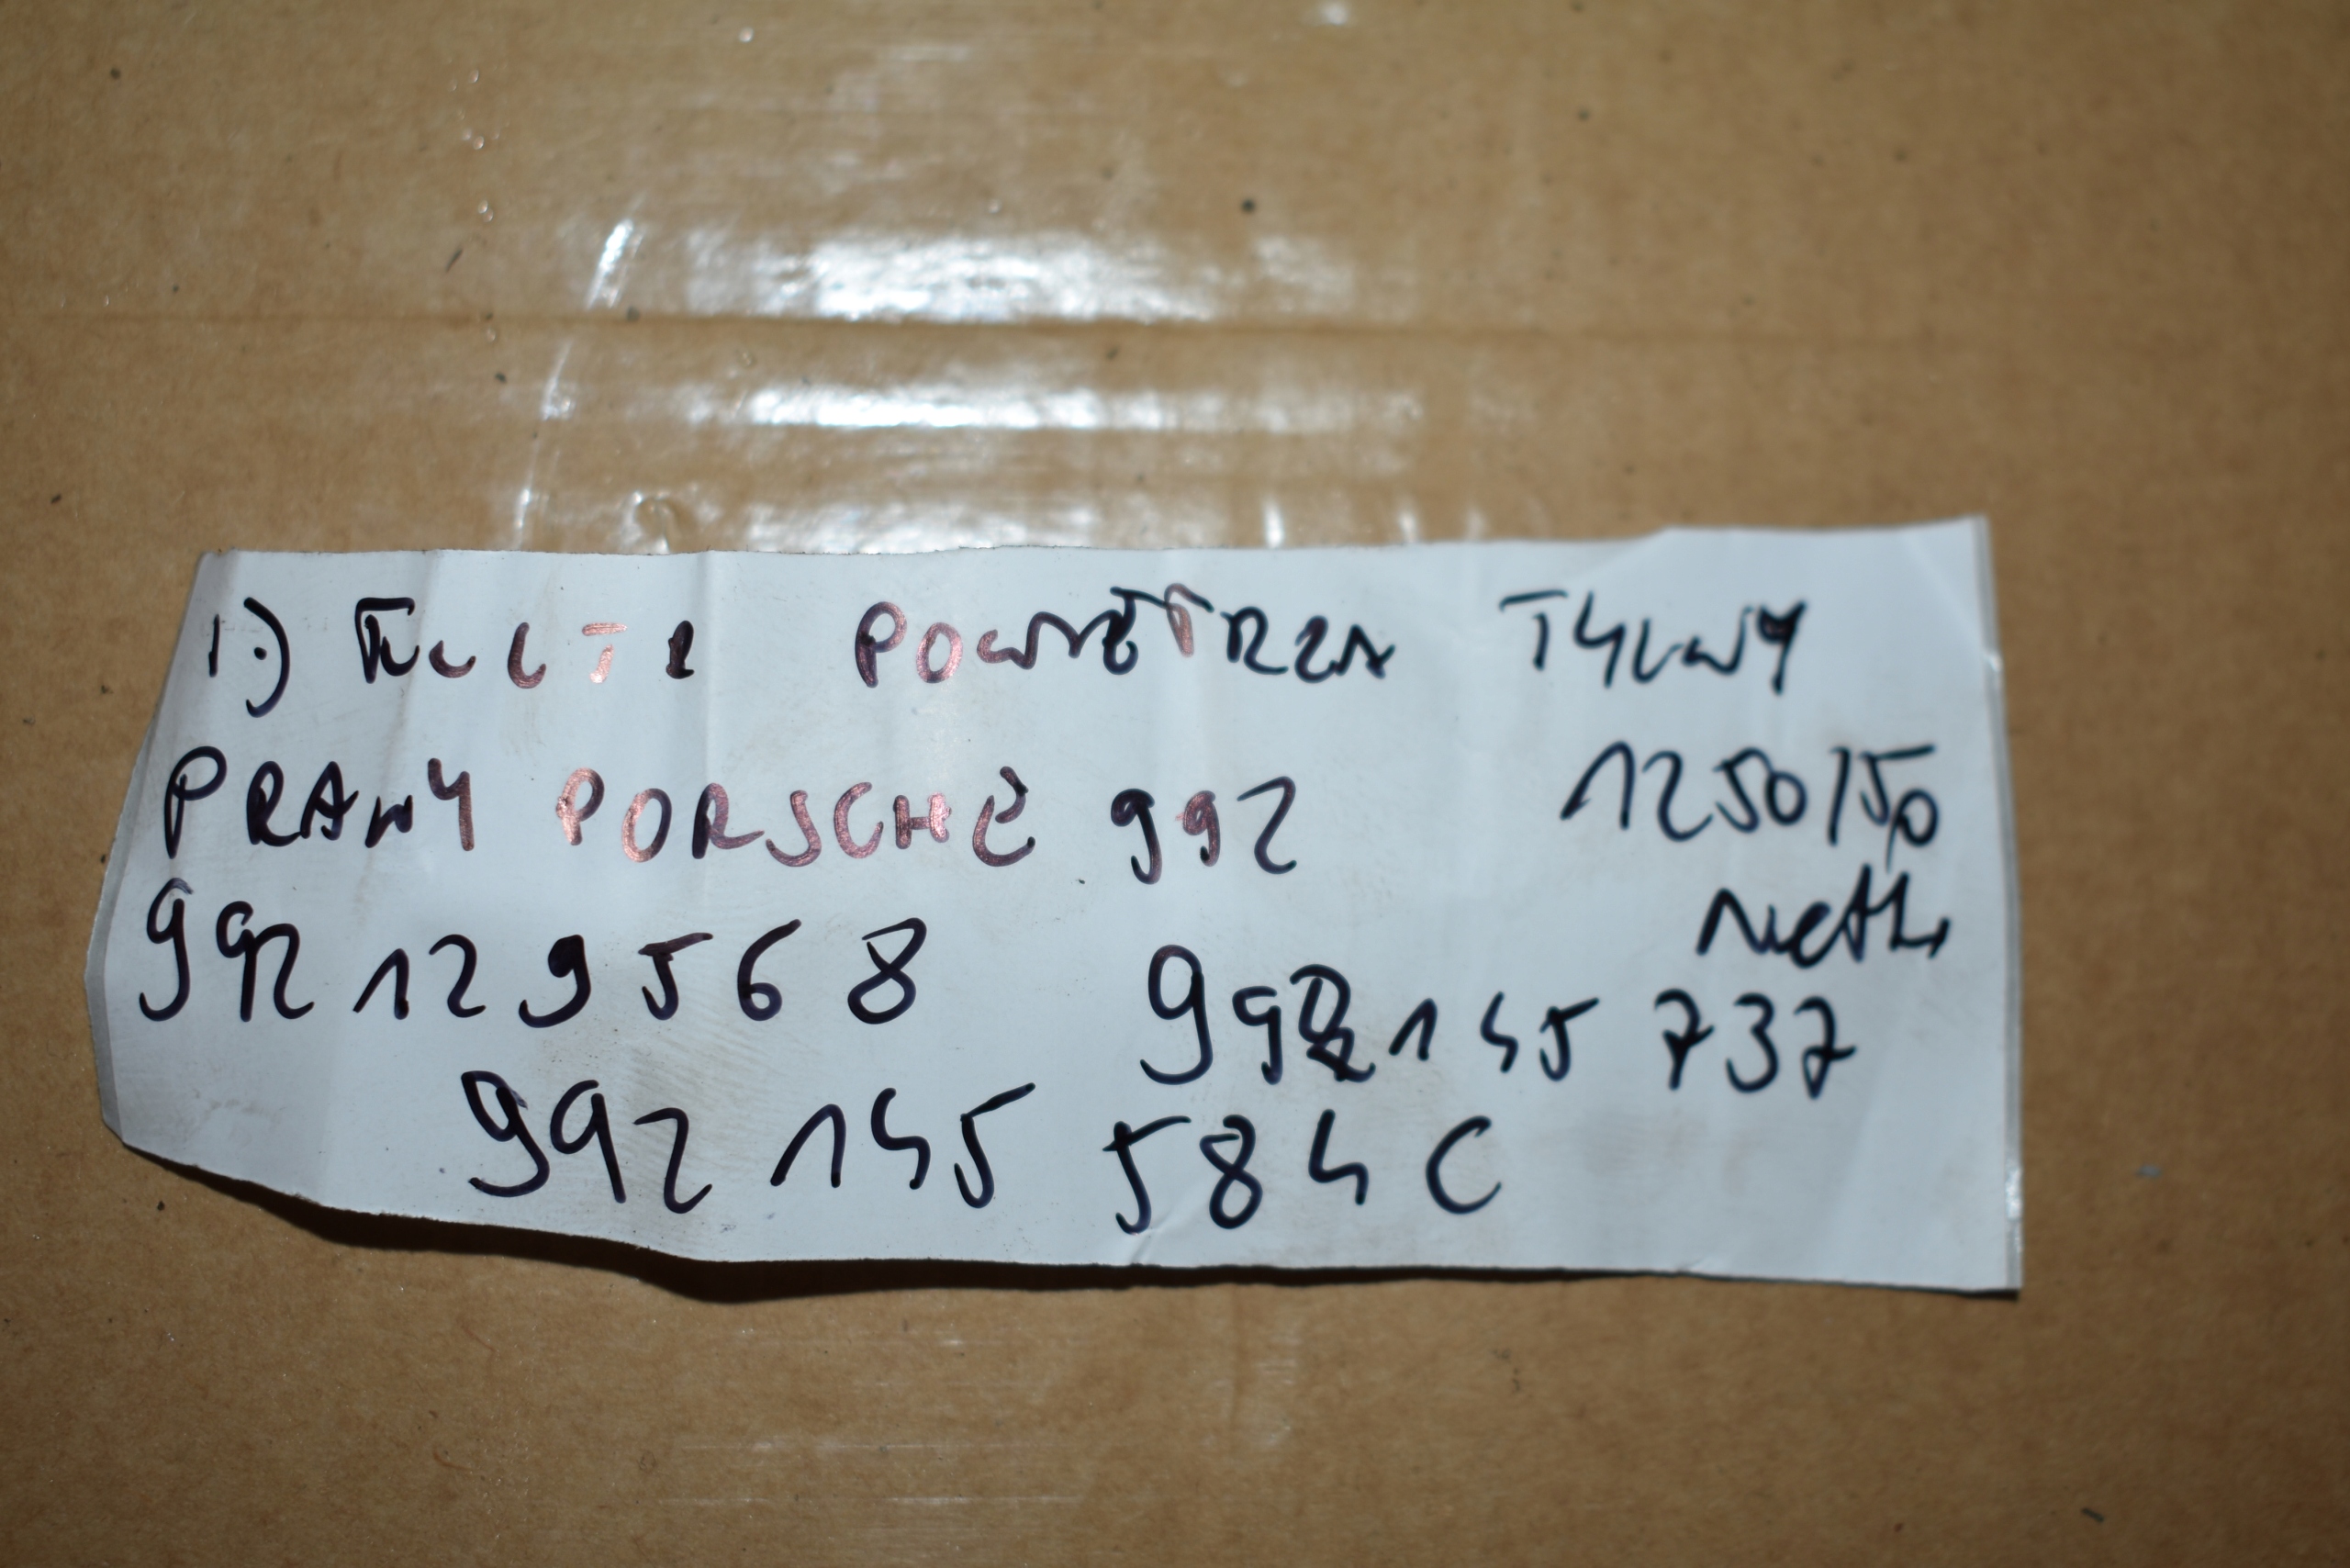 1.) FILTR POWIETRZA TYLNY
PRAWY PORSCHE 992 1250/50
netto
992 129 568 992 145 737
992 145 584 C